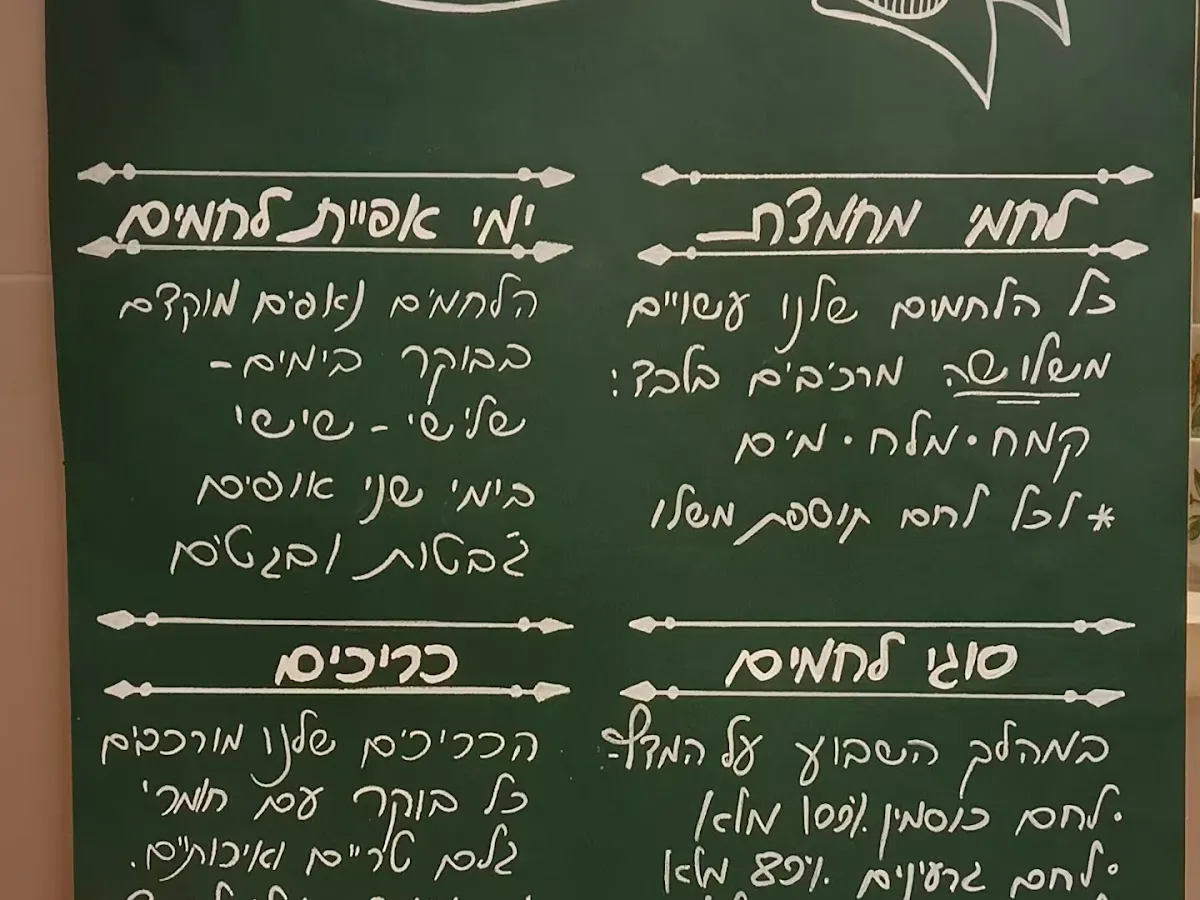 לחמי מחמצת
כל הלחמים שלנו עשויים
משלושה מרכיבים בלבד:
קמח • מלח • מים
*לכל לחם תוספת משלו
ימי אפיית לחמים
הלחמים נאפים מוקדם
בבוקר בימים-
שלישי - שישי
בימי שני אופים
ג'בטות ובגטים
סוגי לחמים
במהלך השבוע על המדף-
• לחם כוסמין 100% מלא
• לחם גרעינים 80% מלא
כריכים
הכריכים שלנו מורכבים
כל בוקר עם חומרי
גלם טריים ואיכותיים.